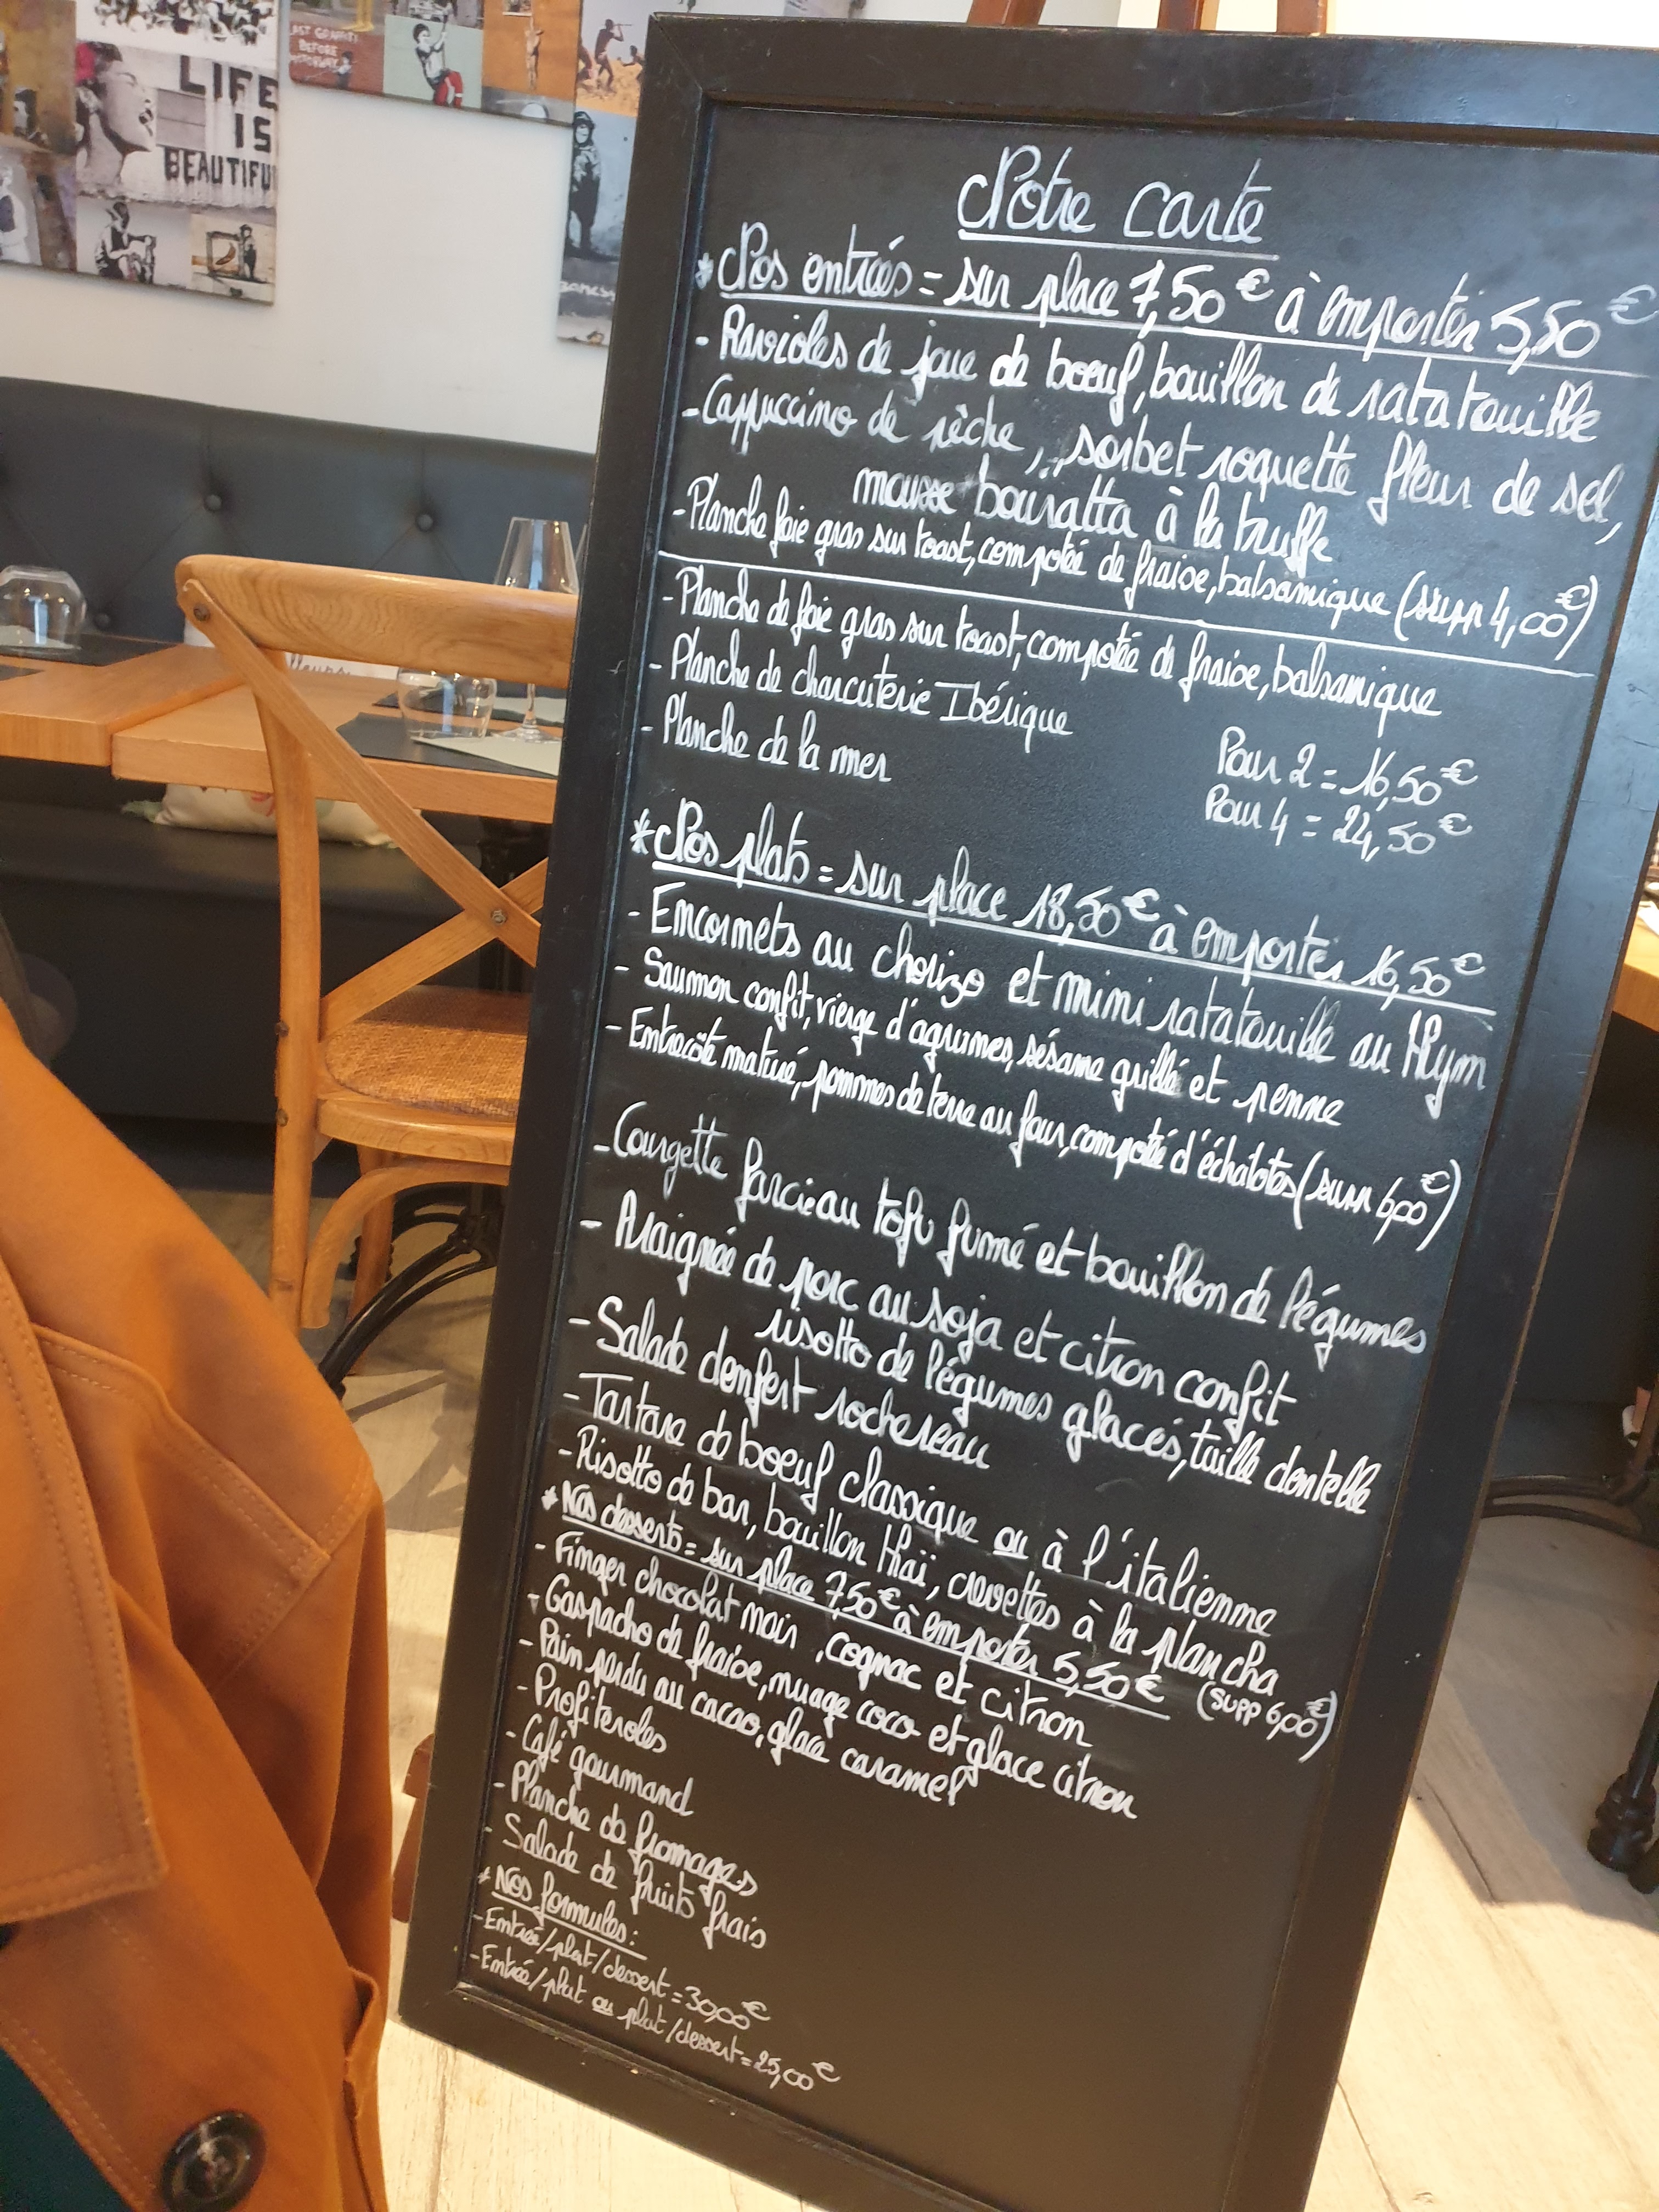 LAST GRAFFITI
BEFORE
MOTORWAY
LIFE
IS
BEAUTIFU
Banksy
Notre carte
* Nos entrées = sur place 7,50€ à emporter 5,50€
- Ravioles de joue de boeuf, bouillon de ratatouille
- Cappuccino de pêche, sorbet roquette fleur de sel,
mousse bouratta à la truffe
- Planche foie gras sur toast, compotée de fraise, balsamique (supp 4,00€)
- Planche de foie gras sur toast, compotée de fraise, balsamique
- Planche de charcuterie Ibérique
- Planche de la mer
Pour 2 = 16,50€
Pour 4 = 24,50€
* Nos plats = sur place 18,50€ à emporter 16,50€
- Encornets au chorizo et mini ratatouille au thym
- Saumon confit, vierge d'agrumes, sésame grillé et penne
- Entrecôte maturé, pommes de terre au four, compotée d'échalotes (supp 6,00€)
- Courgette farcie au tofu fumé et bouillon de légumes
- Araignée de porc au soja et citron confit
risotto de légumes glacés, tuille dentelle
- Salade denfert rochereau
- Tartare de boeuf classique ou à l'italienne
- Risotto de bar, bouillon thaï, crevettes à la plancha
(supp 6,00€)
* Nos desserts = sur place 7,50€ à emporter 5,50€
- Finger chocolat noir, cognac et citron
- Gaspacho de fraise, nuage coco et glace citron
- Pain perdu au cacao, glace caramel
- Profiteroles
- Café gourmand
- Planche de fromages
- Salade de fruits frais
* Nos formules:
- Entrée/plat/dessert = 30,00€
- Entrée/plat ou plat/dessert = 25,00€